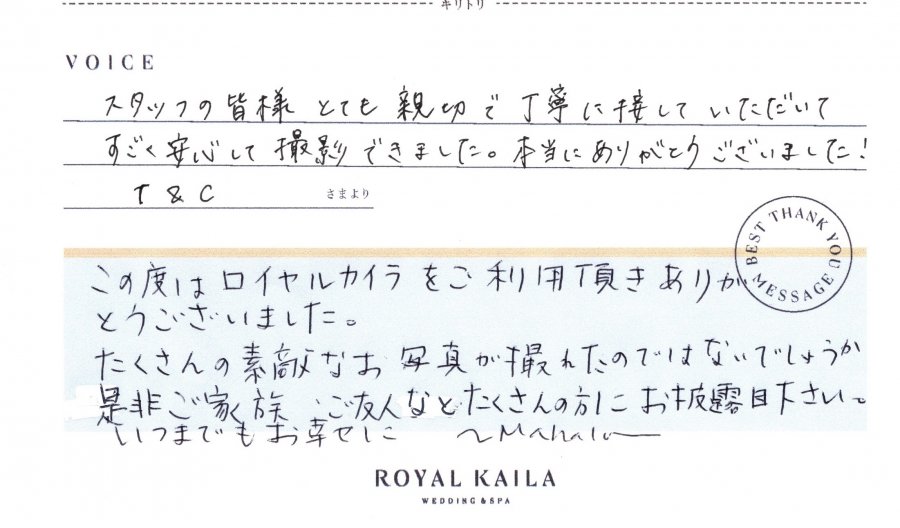 キリトリ
VOICE
スタッフの皆様 とても 親切で 丁寧に接して いただいて
すごく安心して撮影できました。本当にありがとうございました!
T & C さまより
BEST THANK YOU MESSAGE
この度はロイヤルカイラをご利用頂きありが
とうございました。
たくさんの素敵なお写真が撮れたのではないでしょうか
是非ご家族、ご友人などたくさんの方にお披露目下さい。
いつまでもお幸せに ~Mahalo
ROYAL KAILA
WEDDING & SPA